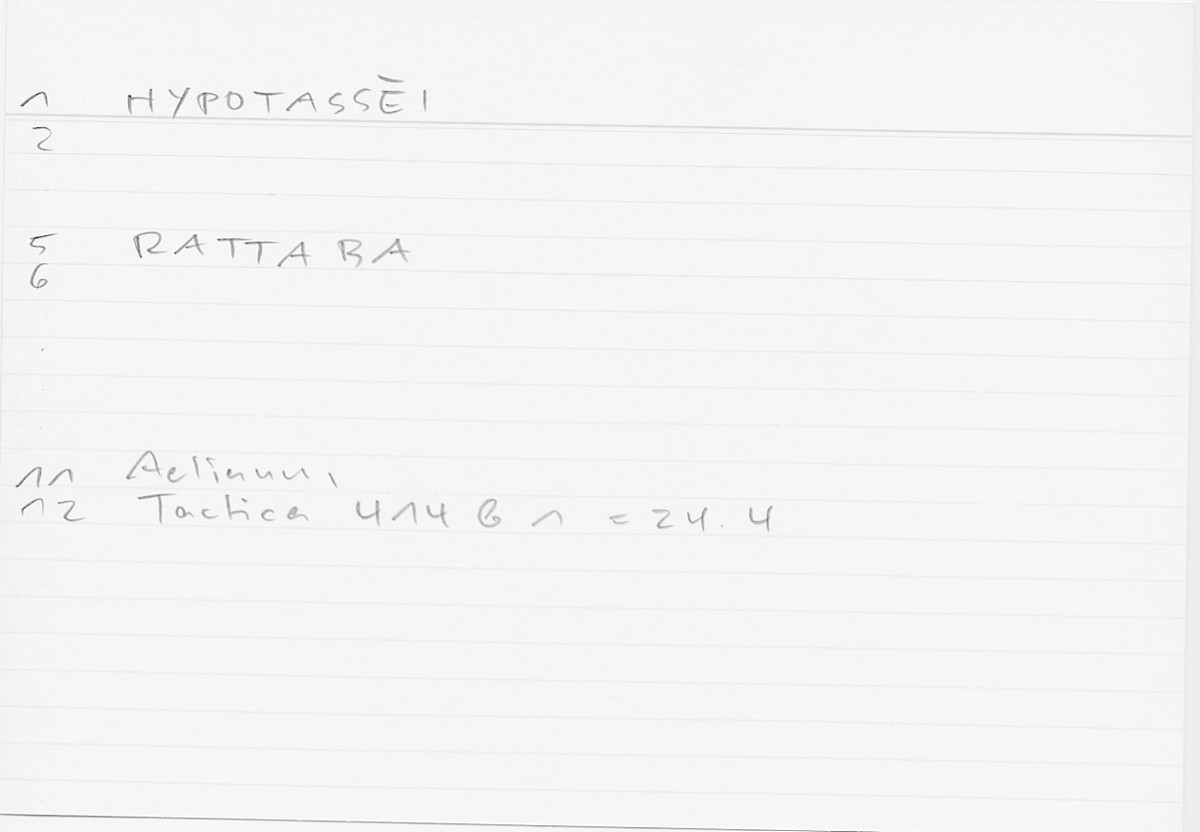 1 HYPOTASSĒI
2
5 RATTABA
6
11 Aelianus,
12 Tactica 414 b 1 = 24.4